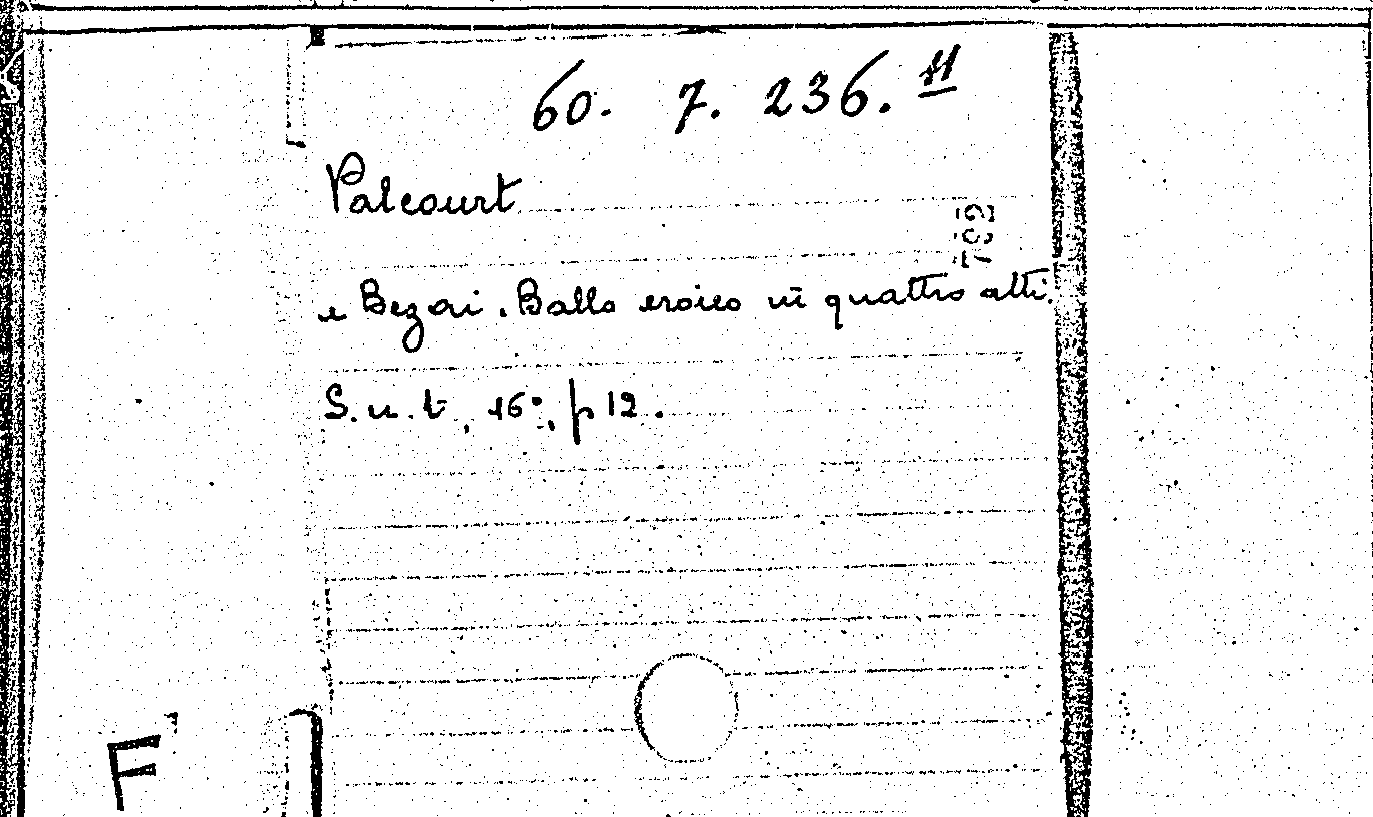 60. 7. 236. 11
Valcourt
e Bezai. Ballo eroico in quattro atti.
S.n.t., 16°, p 12.
F